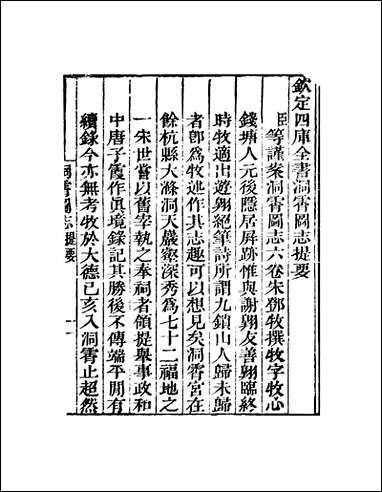 欽定四庫全書洞霄圖志提要
臣等謹案洞霄圖志六卷宋鄧牧撰牧字牧心
錢塘人元後隱居屏跡惟與謝翱友善翱臨終
時牧適出遊翱絕筆詩所謂九鎖山人歸未歸
者卽爲牧述作其志趣可以想見矣洞霄宮在
餘杭縣大滌洞天巖壑深秀爲七十二福地之
一宋世嘗以舊宰執之奉祠者領提舉事政和
中唐子霞作眞境錄記其勝後不傳端平閒有
續錄今亦無考牧於大德己亥入洞霄止超然
洞霄圖志提要
一